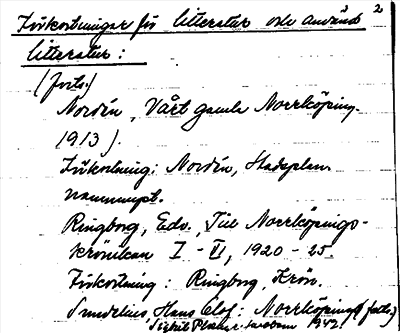 2
Förkortningar för litteratur och använd
litteratur:
(forts.)
Nordén, Vårt gamla Norrköping
1913).
Förkortning: Nordén, Stadsplan.
namnuppt.
Ringborg, Edv., Till Norrköpings-
krönikan I - VI, 1920 - 25.
Förkortning: Ringborg, Krön.
Sundelius, Hans Olof: Norrköpings (forts.)
1942.